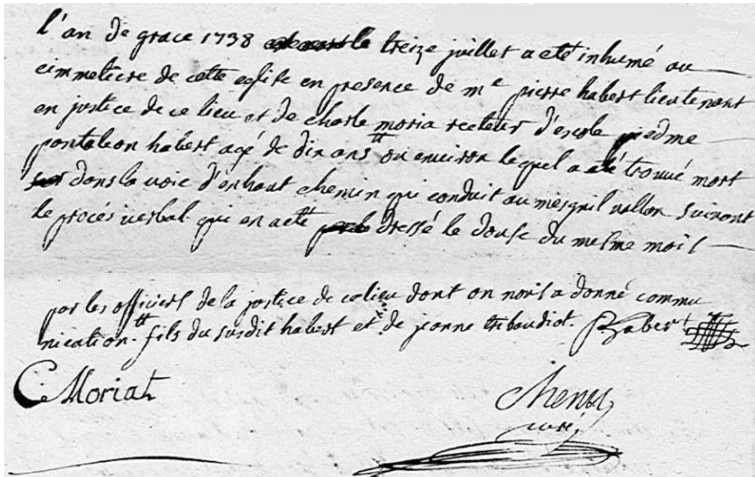 l'an de grace 1738 le treize juillet a eté inhumé au
cimmetiere de cette eglise en presence de me pierre habert lieutenant
en justice de ce lieu et de charle moria recteur d'escole
pantaleon habert agé de dix ans tt ou environ lequel a eté trouvé mort
dans la voie d'enhaut chemin qui conduit au mesgnil vallon suivant
le procés verbal qui en a eté dressé le douse du mesme mois
par les officiers de la justice de ce lieu dont on nous a donné commu
nication. tt fils du susdit habert et de jeanne thibaudiot. P habert
C Moriat
curé